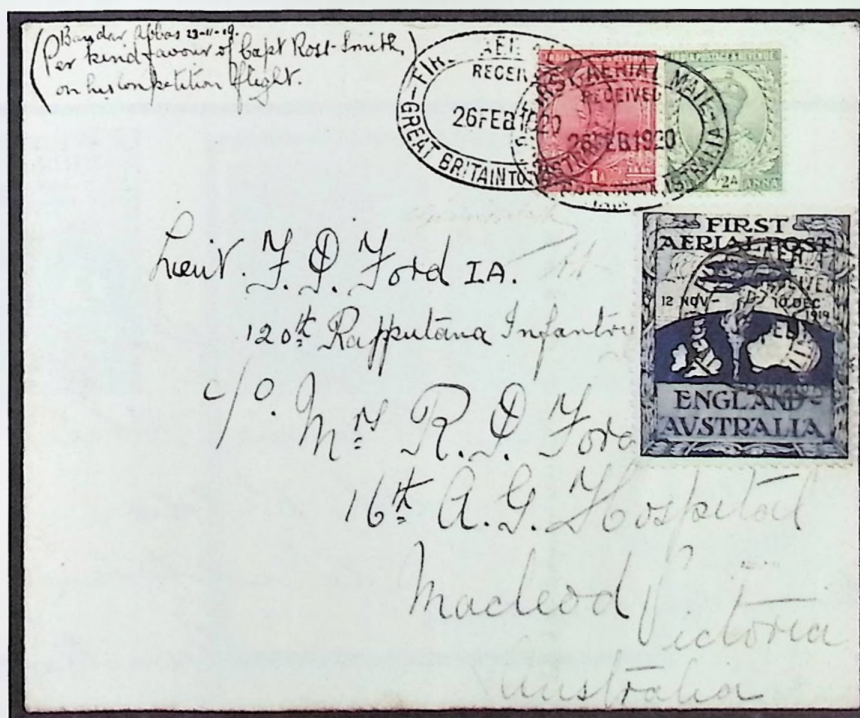 Bandar Abbas 23-11-19.
(Per kind favour of Capt Ross-Smith,
on his competition flight.)
FIRST AERIAL MAIL
RECEIVED
26 FEB 1920
GREAT BRITAIN TO AUSTRALIA
FIRST AERIAL MAIL
RECEIVED
26 FEB 1920
AUSTRALIA
1A
½A ANNA
FIRST
AERIAL POST
12 NOV – 10 DEC
1919
ENGLAND
AUSTRALIA
Lieut. F. P. Ford I.A.
120th Rajputana Infantry
c/o. Mr R. P. Ford
16th A. G. Hospital
Macleod
Victoria
Australia